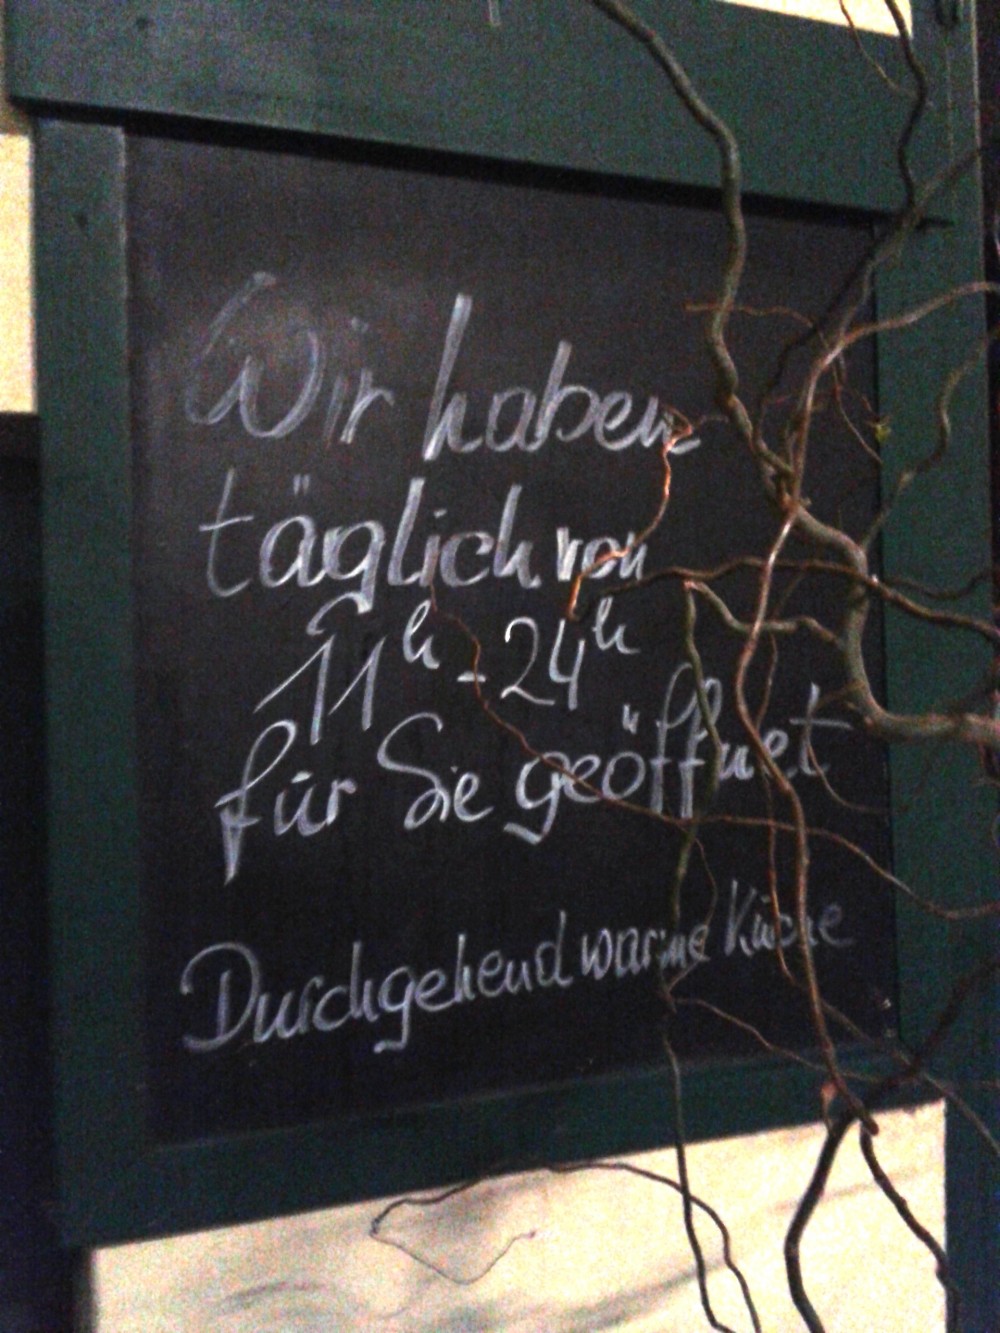 Wir haben
täglich von
11h - 24h
für Sie geöffnet
Durchgehend warme Küche